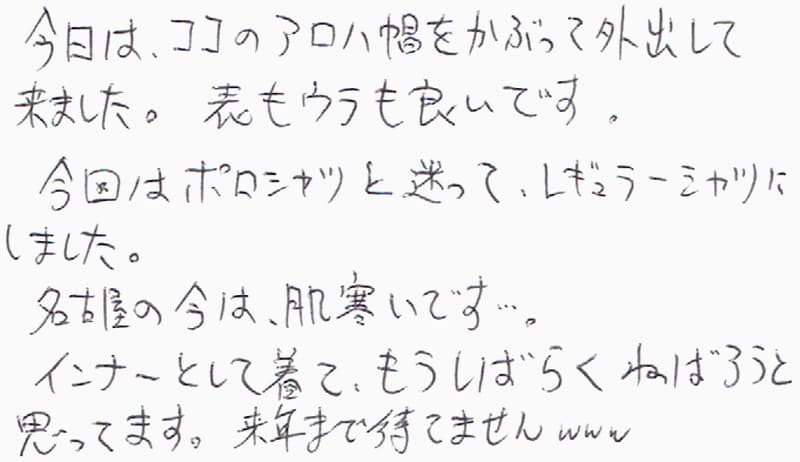 今日は、ココのアロハ帽をかぶって外出して
来ました。表もウラも良いです。
今回はポロシャツと迷って、レギュラーシャツに
しました。
名古屋の今は、肌寒いです…。
インナーとして着て、もうしばらくねばろうと
思ってます。来年まで待てませんwww